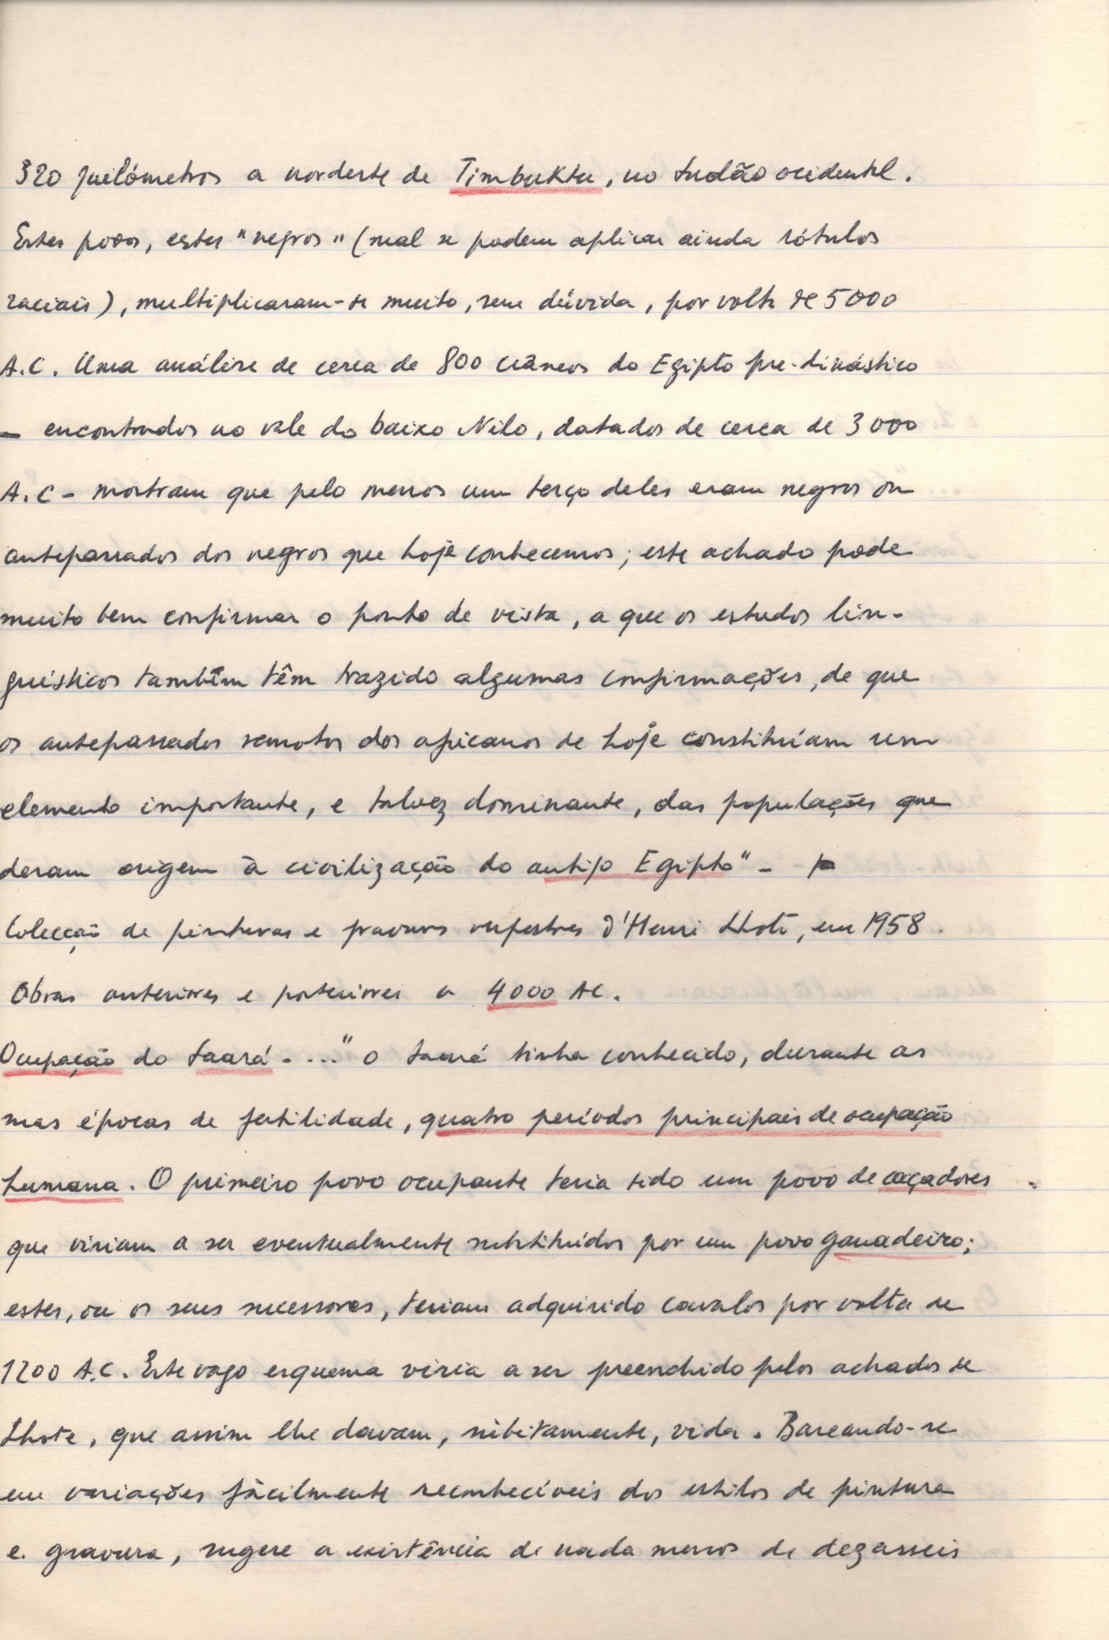 320 quilómetros a nordeste de Timbuktu, no Sudão ocidental.
Estes povos, estes "negros" (mal se podem aplicar ainda rótulos
raciais), multiplicaram-se muito, sem dúvida, por volta de 5000
A.C. Uma análise de cerca de 800 crâneos do Egipto pre-dinástico
— encontrados no vale do baixo Nilo, datados de cerca de 3000
A.C - mostram que pelo menos um terço deles eram negros ou
antepassados dos negros que hoje conhecemos; este achado pode
muito bem confirmar o ponto de vista, a que os estudos lin-
guísticos também têm trazido algumas confirmações, de que
os antepassados remotos dos africanos de hoje constituíam um
elemento importante, e talvez dominante, das populações que
deram origem à civilização do antigo Egipto" -
Colecção de pinturas e gravuras rupestres d'Henri Lhote, em 1958.
Obras anteriores e posteriores a 4000 AC.
Ocupação do Saará - ..." o Saará tinha conhecido, durante as
mas épocas de fertilidade, quatro períodos principais de ocupação
humana. O primeiro povo ocupante teria sido um povo de caçadores
que viriam a ser eventualmente substituídos por um povo ganadeiro;
estes, ou os seus sucessores, teriam adquirido cavalos por volta de
1200 A.C. Este vago esquema viria a ser preenchido pelos achados de
Lhote, que assim lhe davam, sùbitamente, vida. Baseando-se
em variações fàcilmente reconhecíveis dos estilos de pintura
e gravura, sugere a existência de nada menos de dezasseis